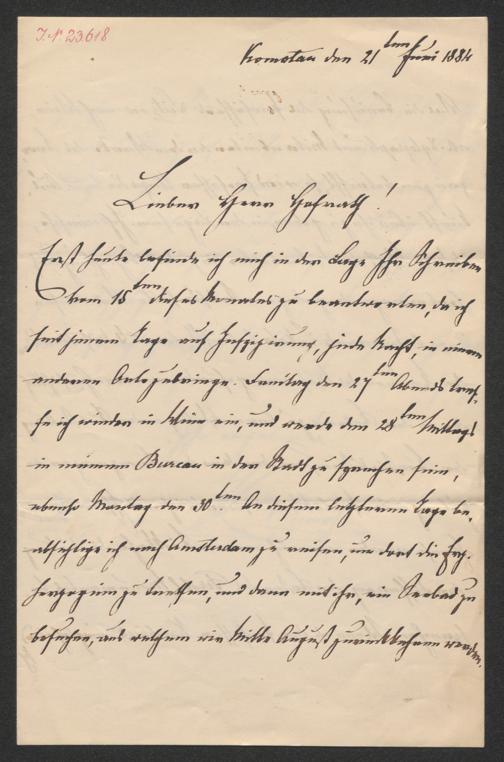 J.N. 23618
Komotau den 21ten Juni 1884
Lieber Herr Hofrath!
Erst heute befinde ich mich in der Lage Ihr Schreiben
vom 15ten dieses Monates zu beantworten, da ich
seit jenem Tage auf Inspizirung, jede Nacht, in einem
anderen Orte zubringe. Freitag den 27ten Abends tref-
fe ich wieder in Wien ein, und werde den 28ten Mittags
in meinem Bureau in der Stadt zu sprechen sein,
ebenso Montag den 30ten. An diesem letzteren Tage be-
absichtige ich nach Amsterdam zu reisen, um dort die Erz-
herzogin zu treffen, und dann mit ihr, ein Seebad zu
besuchen, aus welchem wir Mitte August zurückkehren werden.